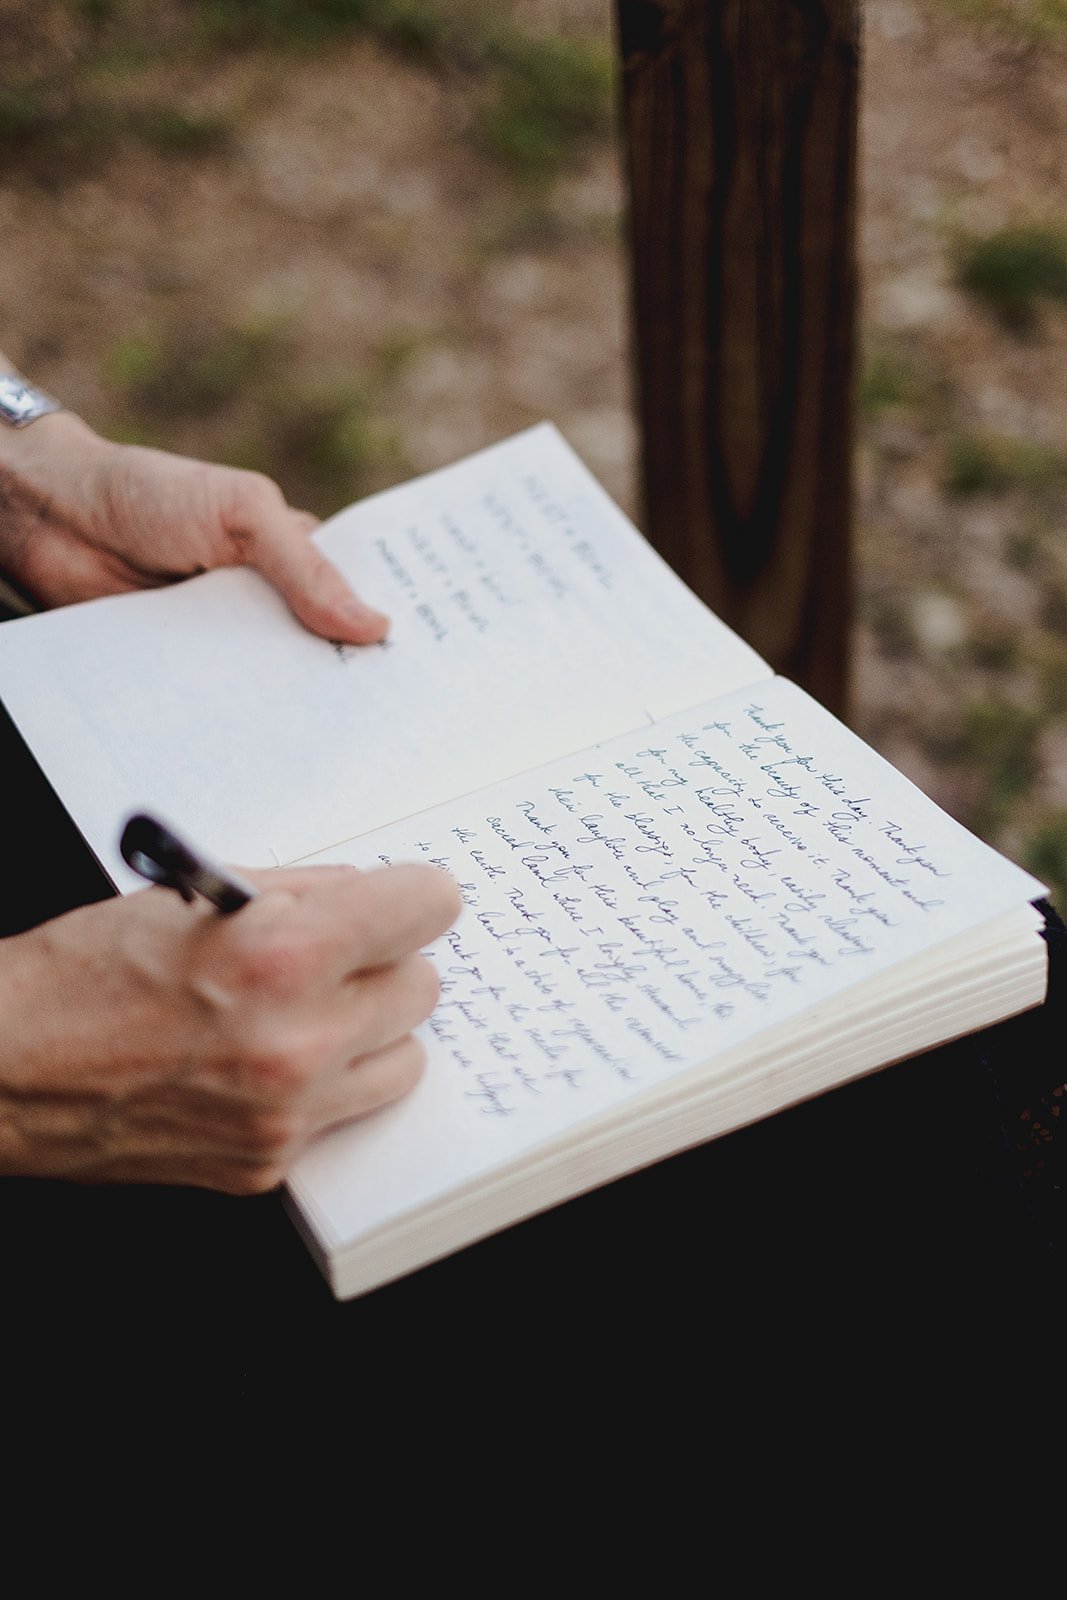 NEST + BOWL
NEST + BOWL
NEST + BOWL
NEST + BOWL
NEST + BOWL
Thank you for this day. Thank you
for the beauty of this moment and
the capacity to receive it. Thank you
for my healthy body, easily releasing
all that I no longer need. Thank you
for the blessings, for the children, for
their laughter and play and snuggles.
Thank you for this beautiful home, the
sacred land where I
the earth. Thank you for all the resources
to bring this land to a state of regeneration
Thank you for the seeds, for
fruits that are
that are